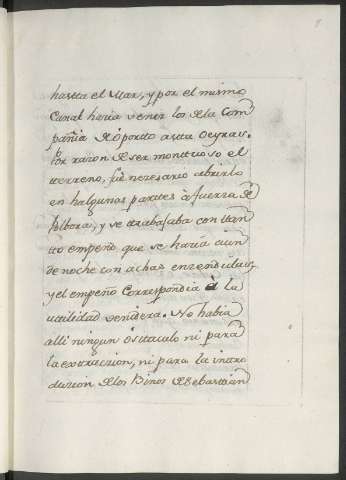 8
hastta el Mar, y por el mismo
Canal haria venir los dela Com
pañia de oportto astta Oeyras.
Por razon de ser monttuoso el
tterreno, fué nezesario abrirlo
en halgunos parttes à fuerza de
Polbora, y se ttrabajaba con ttan
tto empeño que se hazia aun
de noche con achas enzendidas,
y el empeño Correspondia à la
uttilidad venidera. No habia
alli ningun osttaculo ni para
la exttraczion, ni para la inttro
duzion delos Binos de Sebasttian